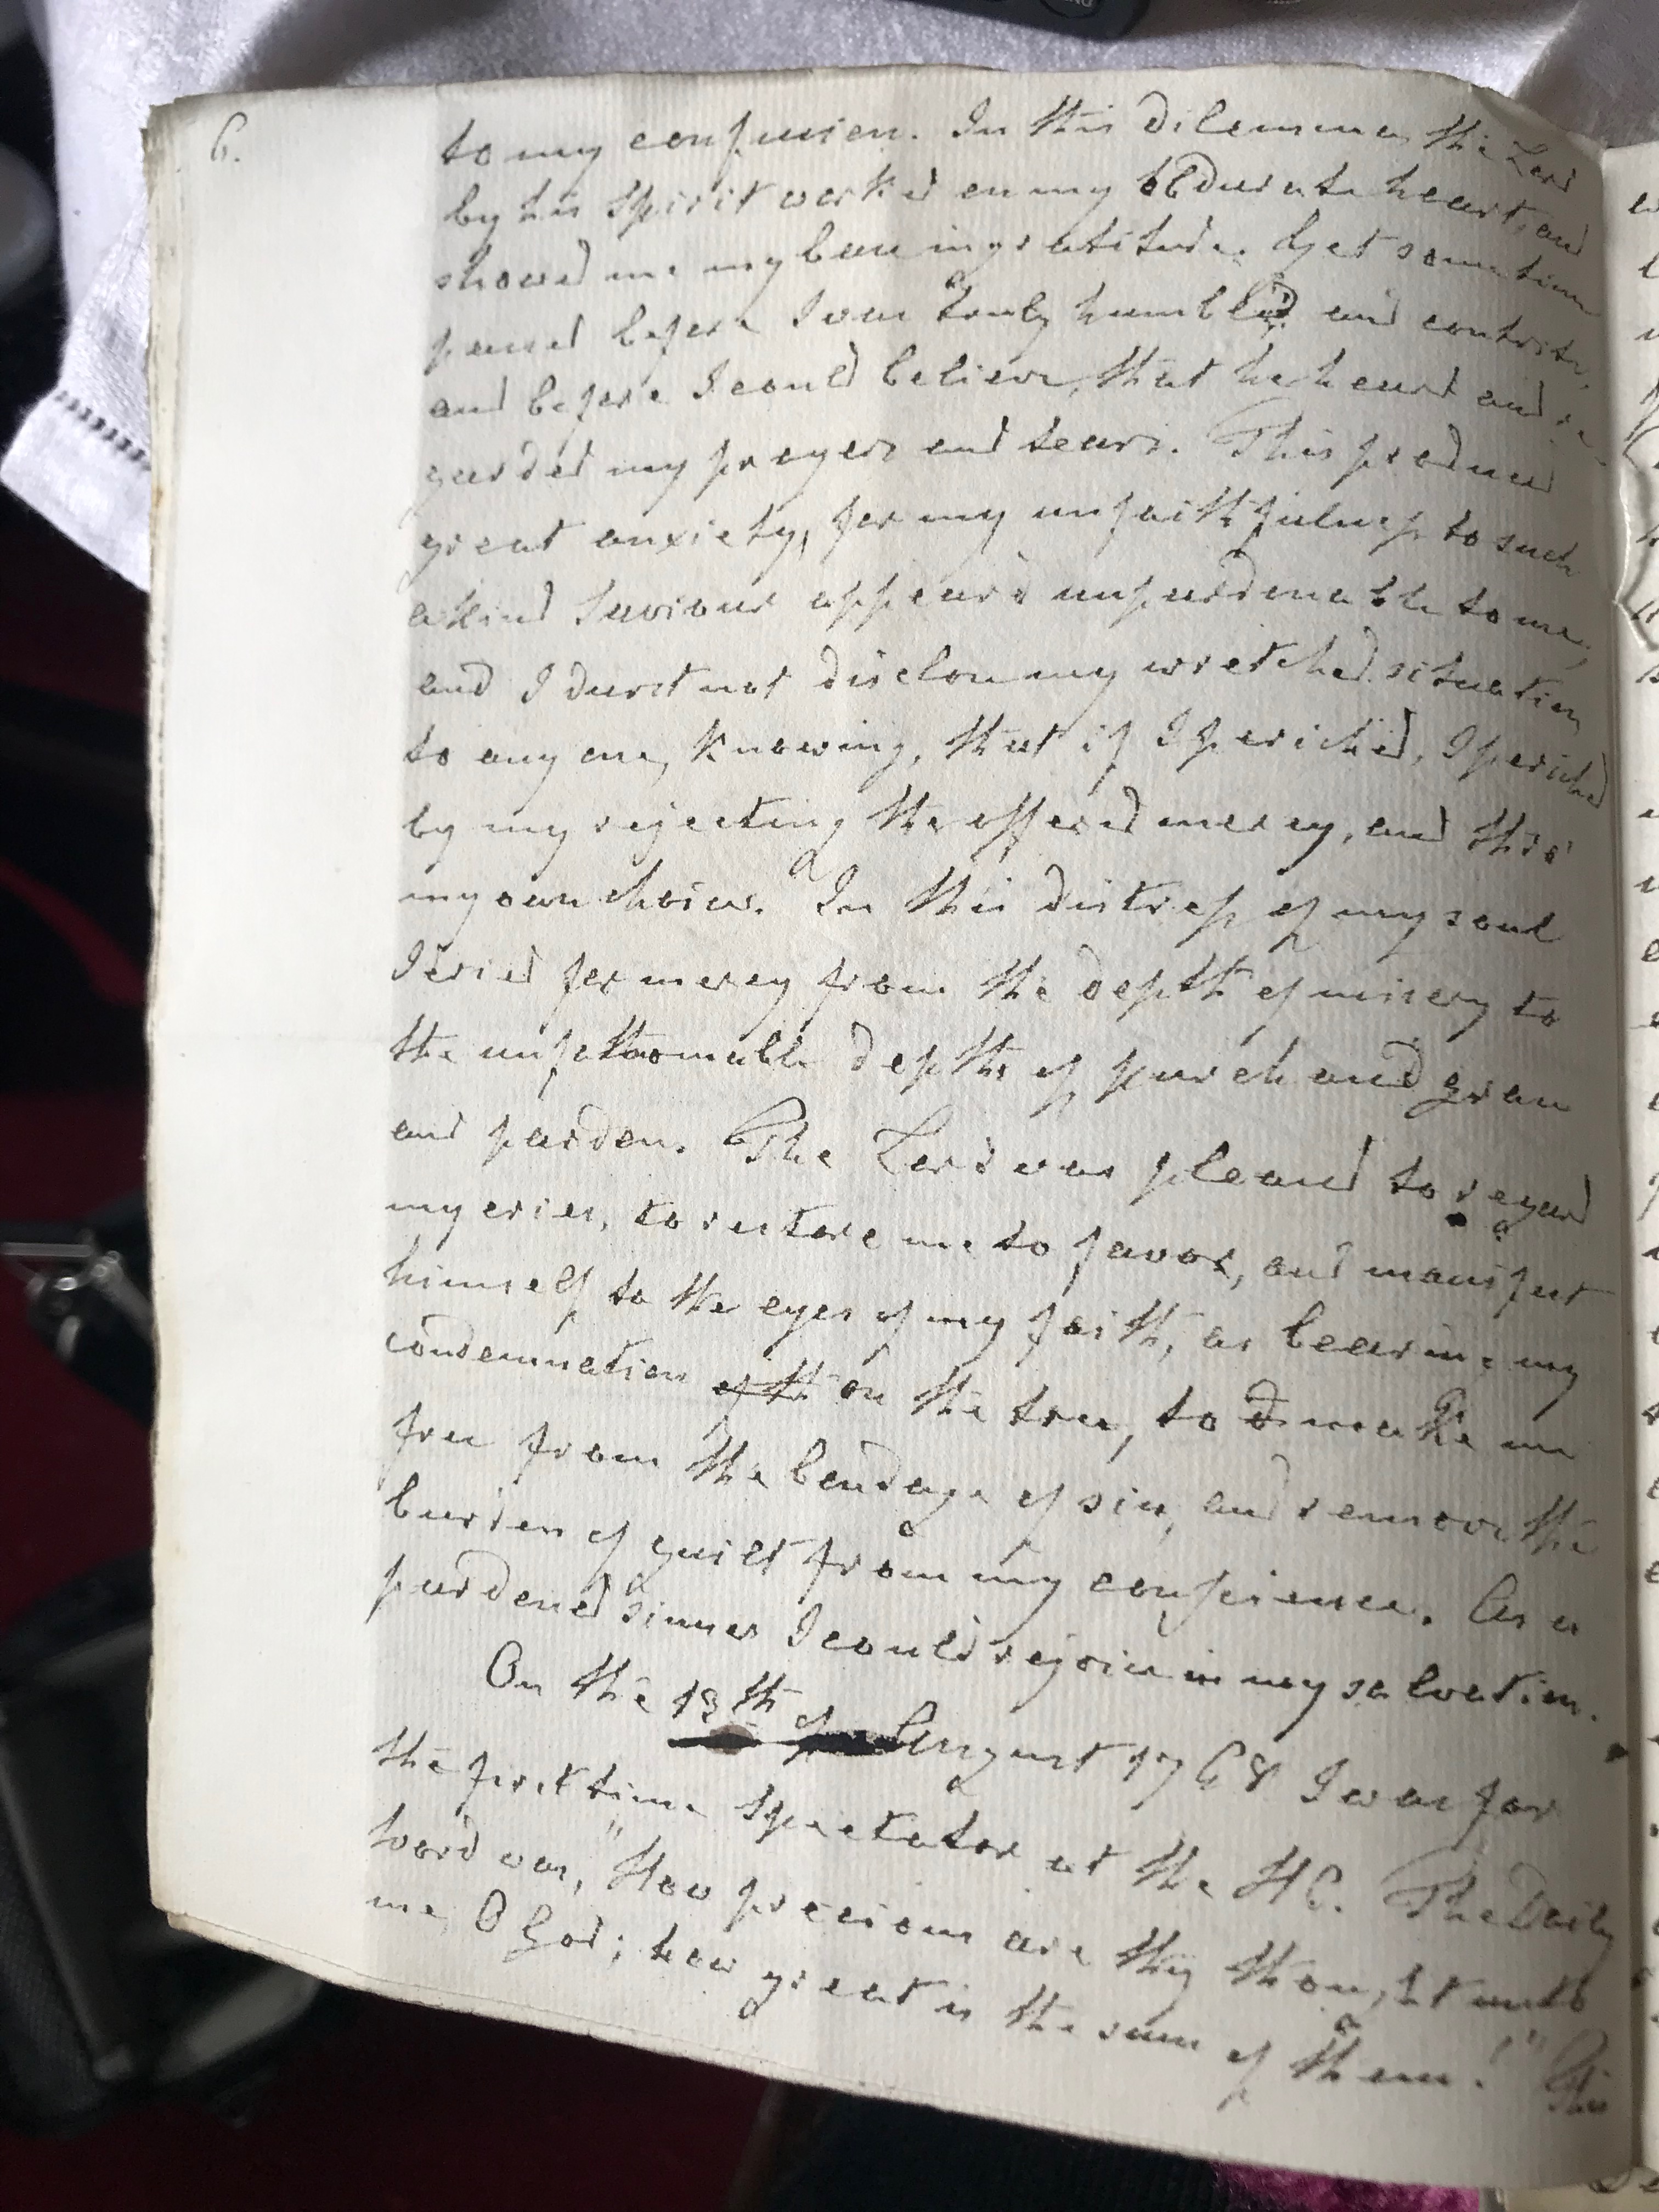 6.
to my confusion. In this dilemma the Lord
by his Spirit worked on my obdurate heart, and
showed me my base ingratitude. Yet some time
passed before I was truly humbled and contrite,
and before I could believe, that he heard and re-
garded my prayers and tears. This produced
great anxiety, for my unfaithfulness to such
a kind Saviour appeard unpardonable to me,
and I durst not disclose my wretched situation
to any one, knowing, that if I perished, I perished
by my rejecting the offered mercy, and this
my own choice. In this distress of my soul
I cried for mercy from the depth of misery to
the unfathomable depths of purchased grace
and pardon. The Lord was pleased to regard
my cries, to restore me to favor, and manifest
himself to the eyes of my faith, as bearing my
condemnation of th on the tree, to make me
free from the bondage of sin, and remove the
burden of guilt from my conscience. As a
pardoned sinner I could rejoice in my salvation.
On the 13th of August 1768 I was for
the first time spectator at the HC. The Daily
word was, "How precious are thy thought unto
me, O God; how great is the sum of them!" This